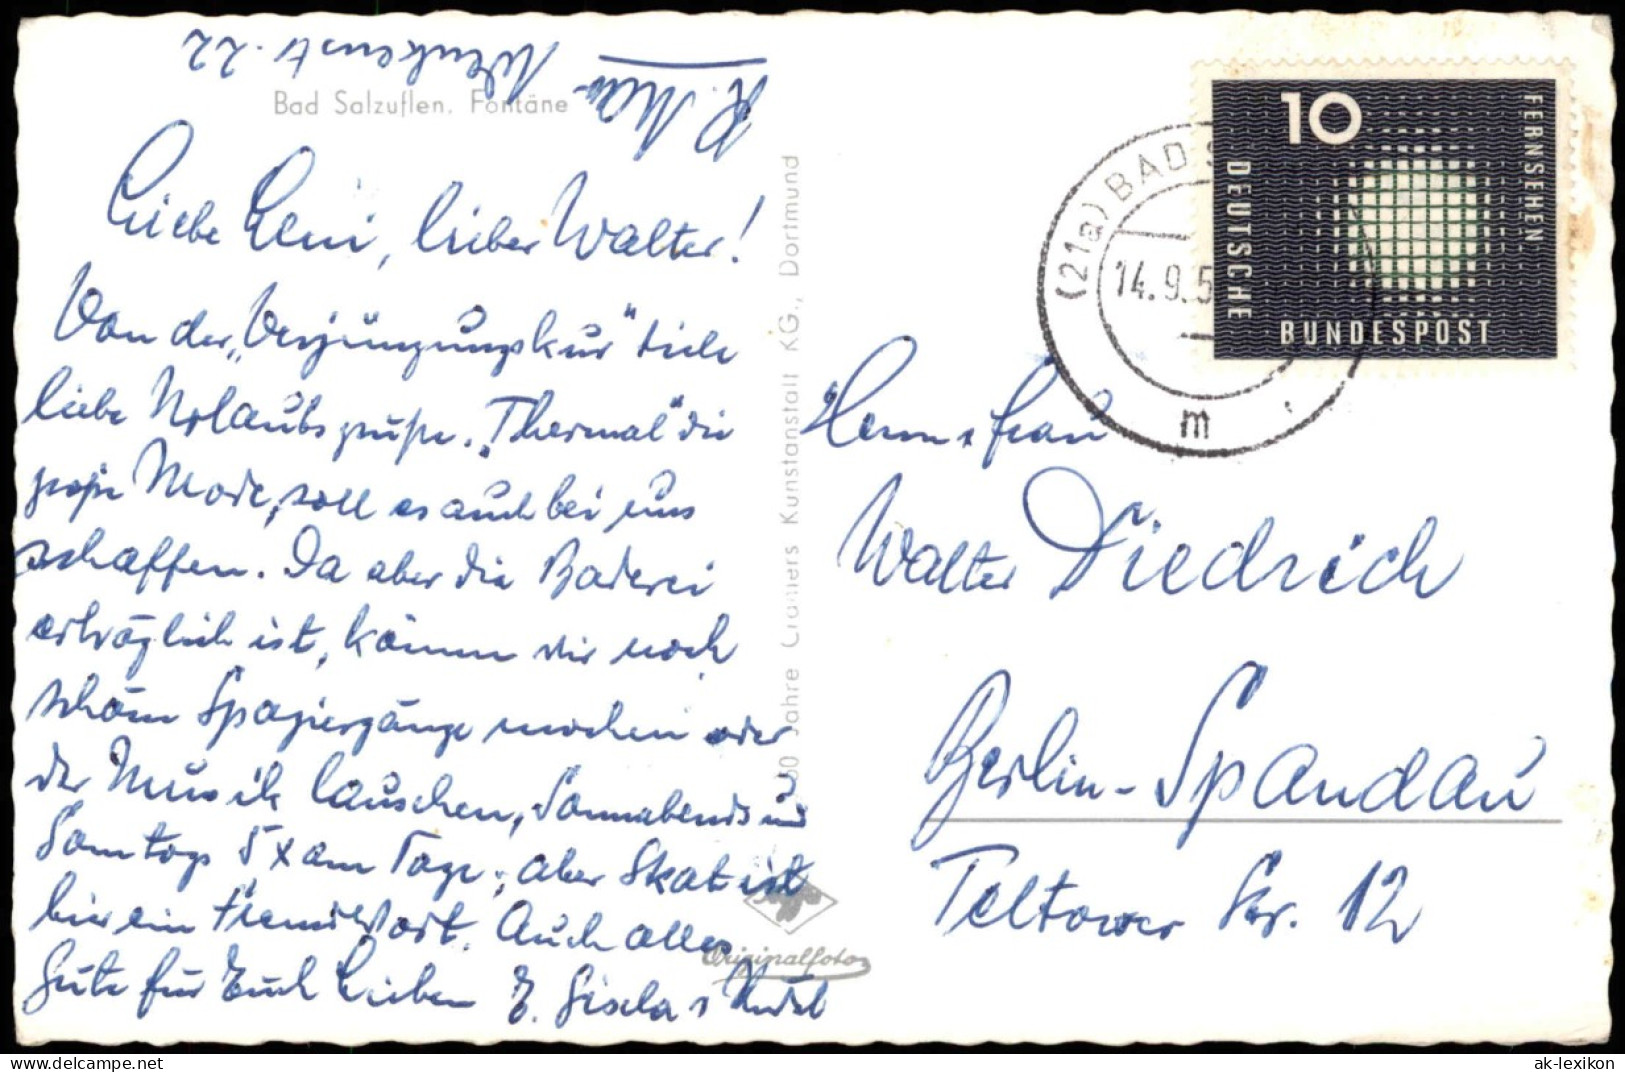 Wenkenstr. 22
Bad Salzuflen. Fontäne
Liebe Leni, lieber Walter!
Von der „Verjüngungskur" viele
liebe Urlaubsgrüße. „Thermal" die
große Mode, soll es auch bei uns
schaffen. Da aber die Baderei
erträglich ist, können wir noch
schöne Spaziergänge machen oder
der Musik lauschen, Sonnabends und
Sonntags 5 x am Tage; aber Skat ist
hier ein Fremdwort. Auch alles
Gute für Euch Lieben E. Gisela +
80 Jahre Cramers Kunstanstalt KG., Dortmund
Originalfoto
(21a) BAD S
14.9.5
m
10
FERNSEHEN
DEUTSCHE
BUNDESPOST
Herrn + Frau
Walter Diedrich
Berlin-Spandau
Teltower Str. 12
ak-lexikon
www.delcampe.net